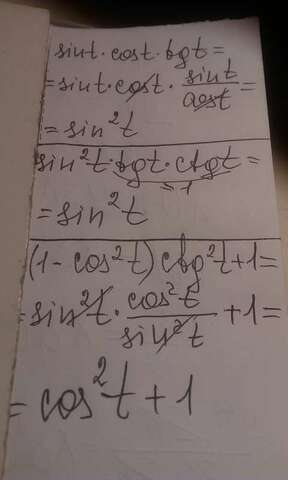 sint·cost·tgt=
=sint·cost·sint/cost=
=sin²t
sin²t·tgt·ctgt=
=1
=sin²t
(1-cos²t)ctg²t+1=
=sin²t·cos²t/sin²t+1=
=cos²t+1